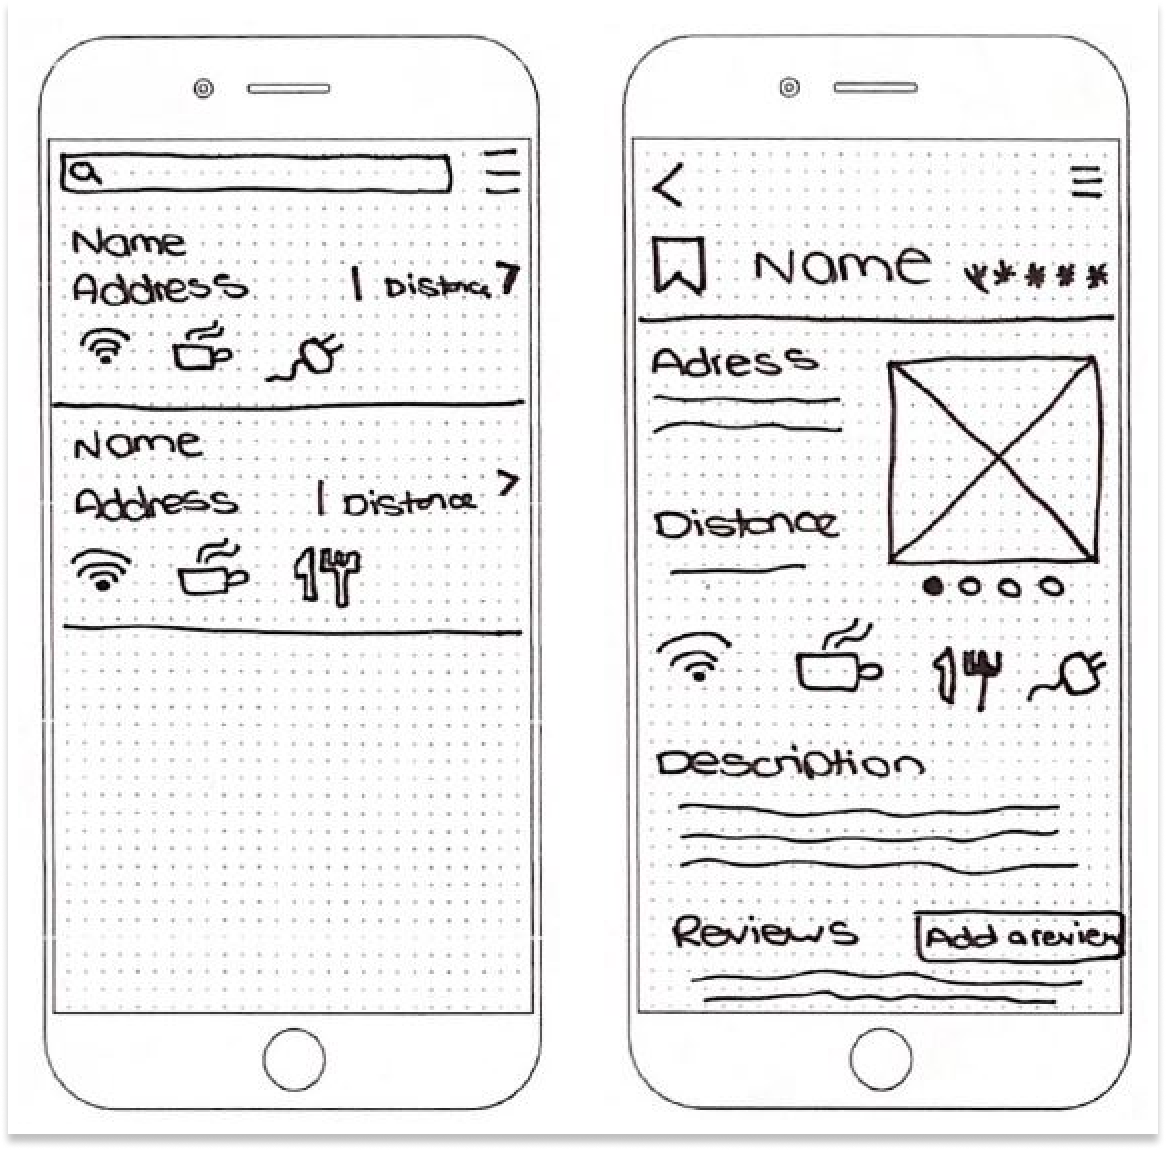 Name
Address | Distance >
Name
Address | Distance >
< Name *****
Adress
Distance
Description
Reviews Add a review